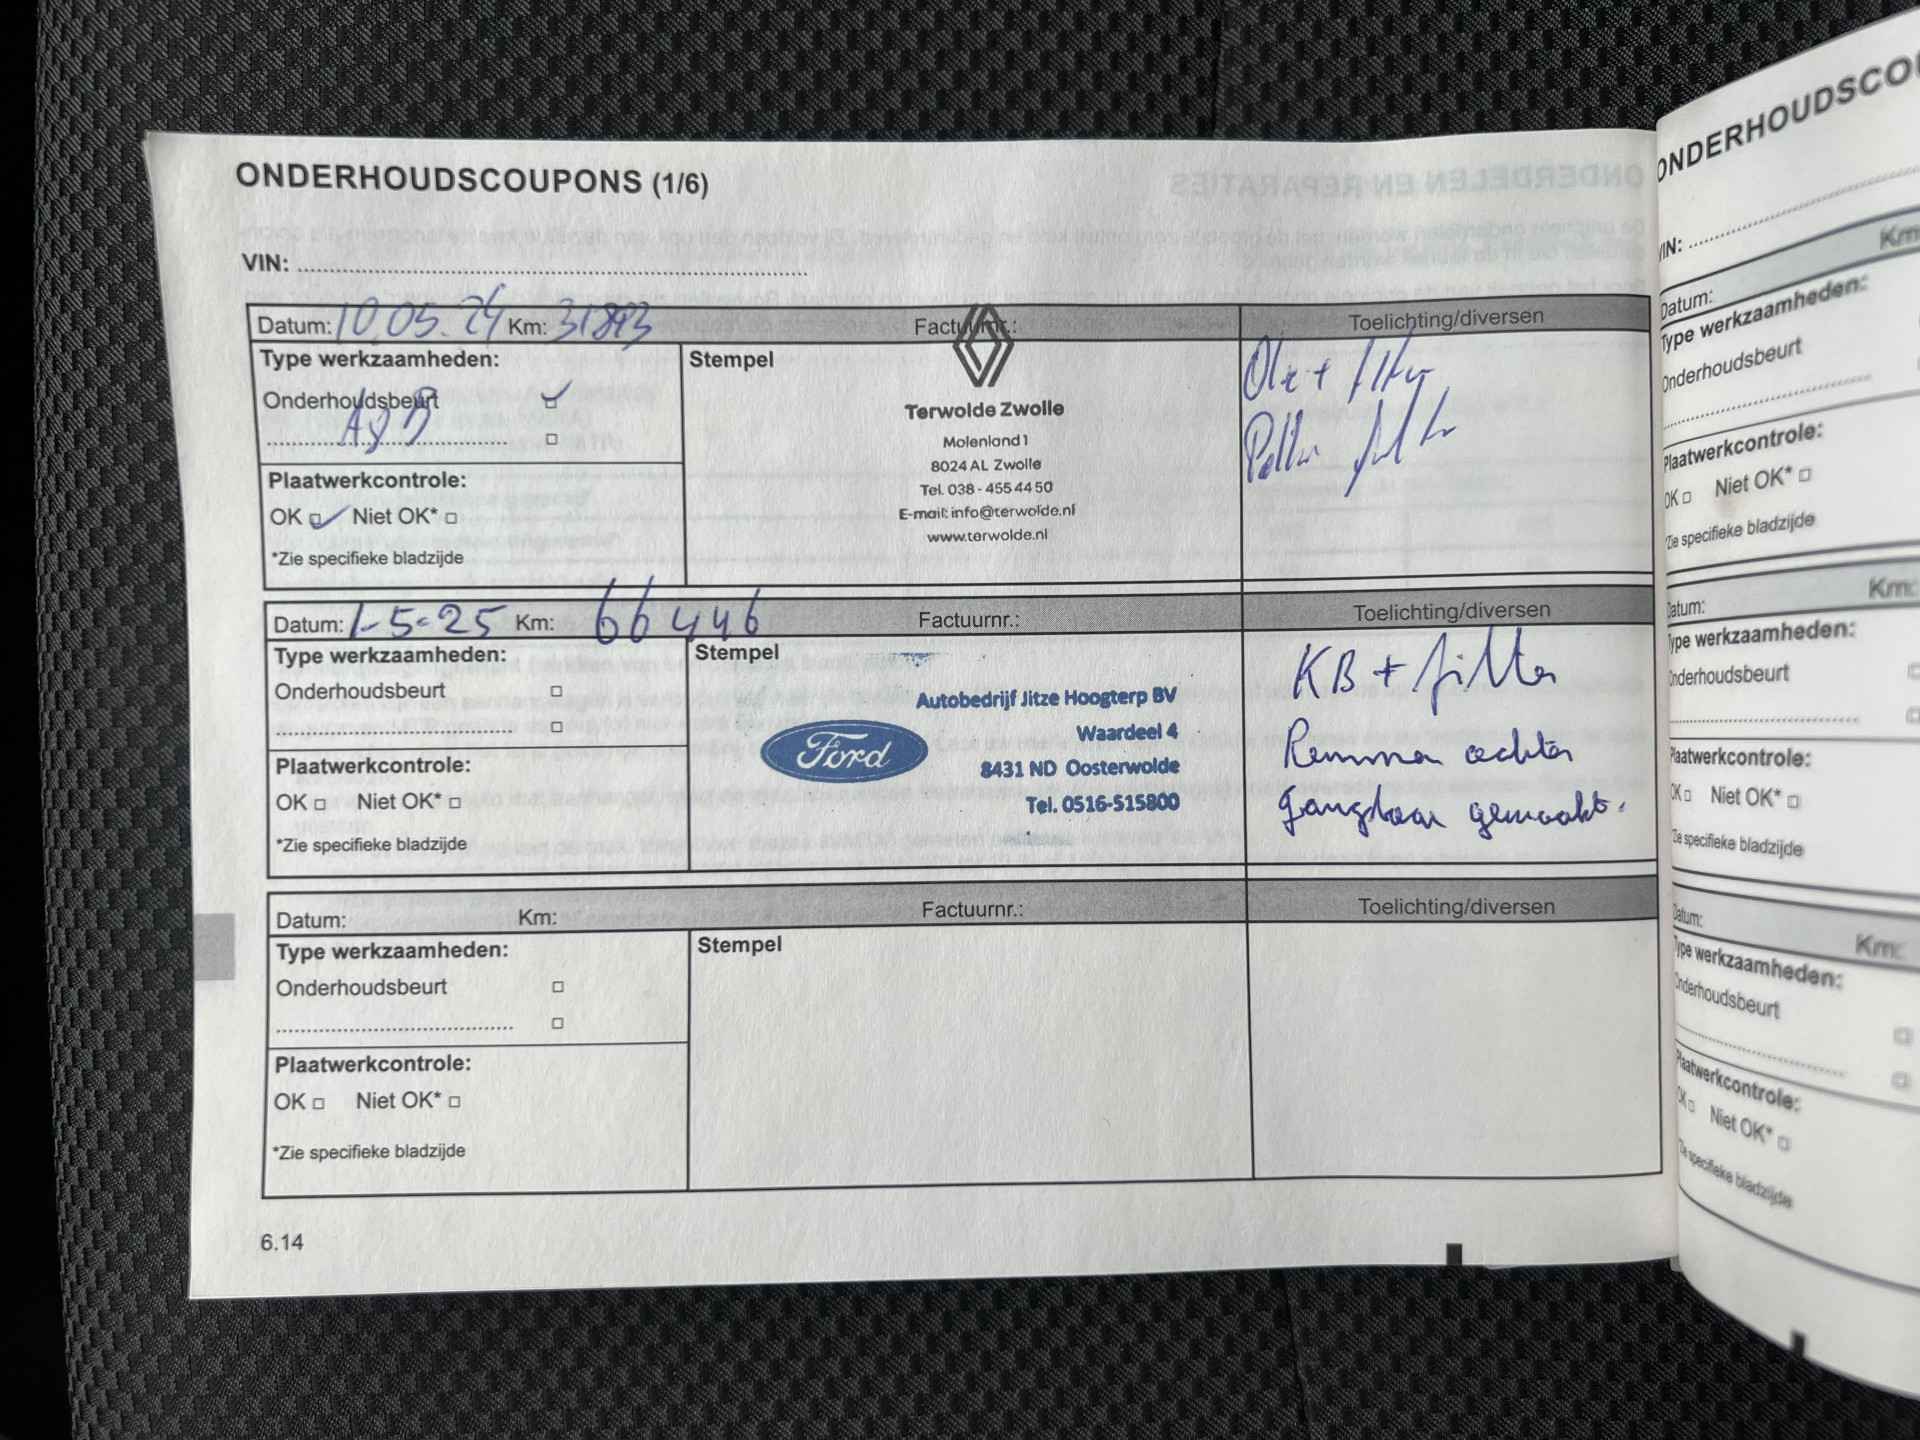 ONDERHOUDSCOUPONS (1/6)
VIN:
Datum: 10.05.24 Km: Factuurnr.: Toelichting/diversen
Type werkzaamheden:
Onderhoudsbeurt
A&B
Plaatwerkcontrole:
OK Niet OK*
*Zie specifieke bladzijde
Stempel
Terwolde Zwolle
Molenland 1
8024 AL Zwolle
Tel. 038 - 455 44 50
E-mail: info@terwolde.nl
www.terwolde.nl
Olie + filter
filter
Datum: 1-5-25 Km: 66446 Factuurnr.: Toelichting/diversen
Type werkzaamheden:
Onderhoudsbeurt
Plaatwerkcontrole:
OK Niet OK*
*Zie specifieke bladzijde
Stempel
Ford
Autobedrijf Jitze Hoogterp BV
Waardeel 4
8431 ND Oosterwolde
Tel. 0516-515800
KB + filter
Remmen achter
gangbaar gemaakt.
Datum: Km: Factuurnr.: Toelichting/diversen
Type werkzaamheden:
Onderhoudsbeurt
Plaatwerkcontrole:
OK Niet OK*
*Zie specifieke bladzijde
Stempel
6.14
ONDERHOUDSCOU
VIN:
Datum: Km:
Type werkzaamheden:
Onderhoudsbeurt
Plaatwerkcontrole:
OK Niet OK*
*Zie specifieke bladzijde
Datum: Km:
Type werkzaamheden:
Onderhoudsbeurt
Plaatwerkcontrole:
OK Niet OK*
*Zie specifieke bladzijde
Datum: Km:
Type werkzaamheden:
Onderhoudsbeurt
Plaatwerkcontrole:
OK Niet OK*
*Zie specifieke bladzijde